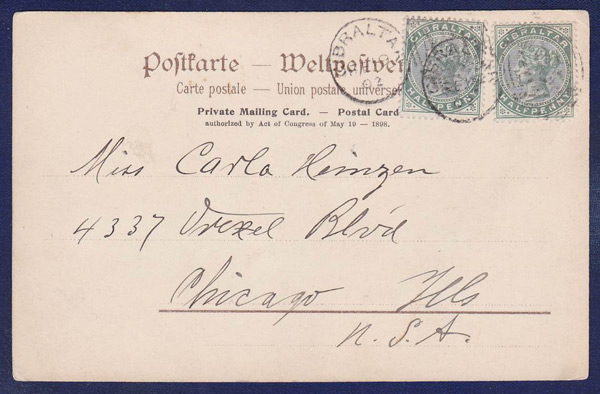 Postkarte — Weltpostver
Carte postale — Union postale universel
Private Mailing Card. — Postal Card
authorized by Act of Congress of May 19 — 1898.
GIBRALTAR
02
GIBRALTAR
HALFPENNY
GIBRALTAR
HALFPENNY
Miss Carla Heinzen
4337 Drexel Blvd
Chicago Ills
U.S.A.